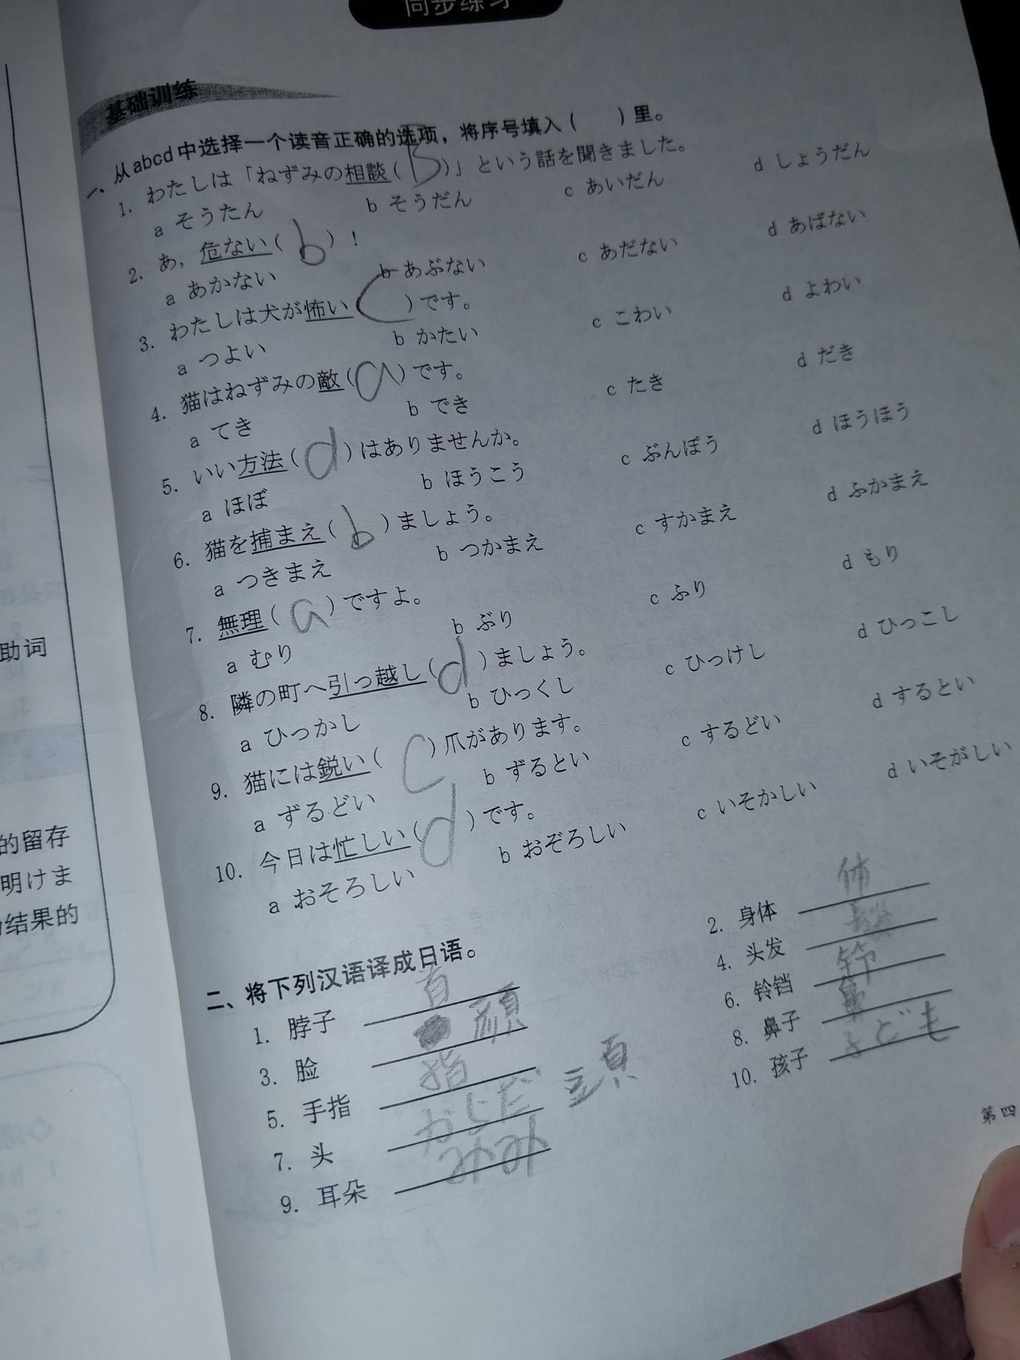 同步练习
基础训练
一、从abcd中选择一个读音正确的选项，将序号填入（ ）里。
1. わたしは「ねずみの相談（B）」という話を聞きました。
a そうたん b そうだん c あいだん d しょうだん
2. あ，危ない（b）！
a あかない b あぶない c あだない d あばない
3. わたしは犬が怖い（C）です。
a つよい b かたい c こわい d よわい
4. 猫はねずみの敵（a）です。
a てき b でき c たき d だき
5. いい方法（d）はありませんか。
a ほぼ b ほうこう c ぶんぽう d ほうほう
6. 猫を捕まえ（b）ましょう。
a つきまえ b つかまえ c すかまえ d ふかまえ
7. 無理（a）ですよ。
a むり b ぶり c ふり d もり
8. 隣の町へ引っ越し（d）ましょう。
a ひっかし b ひっくし c ひっけし d ひっこし
9. 猫には鋭い（C）爪があります。
a ずるどい b ずるとい c するどい d するとい
10. 今日は忙しい（d）です。
a おそろしい b おぞろしい c いそかしい d いそがしい
二、将下列汉语译成日语。
1. 脖子 首 2. 身体 体
3. 脸 顔 4. 头发
5. 手指 指 6. 铃铛 鈴
7. 头 8. 鼻子 鼻
9. 耳朵 みみ 10. 孩子 こども
助词
的留存
明けま
结果的
第四